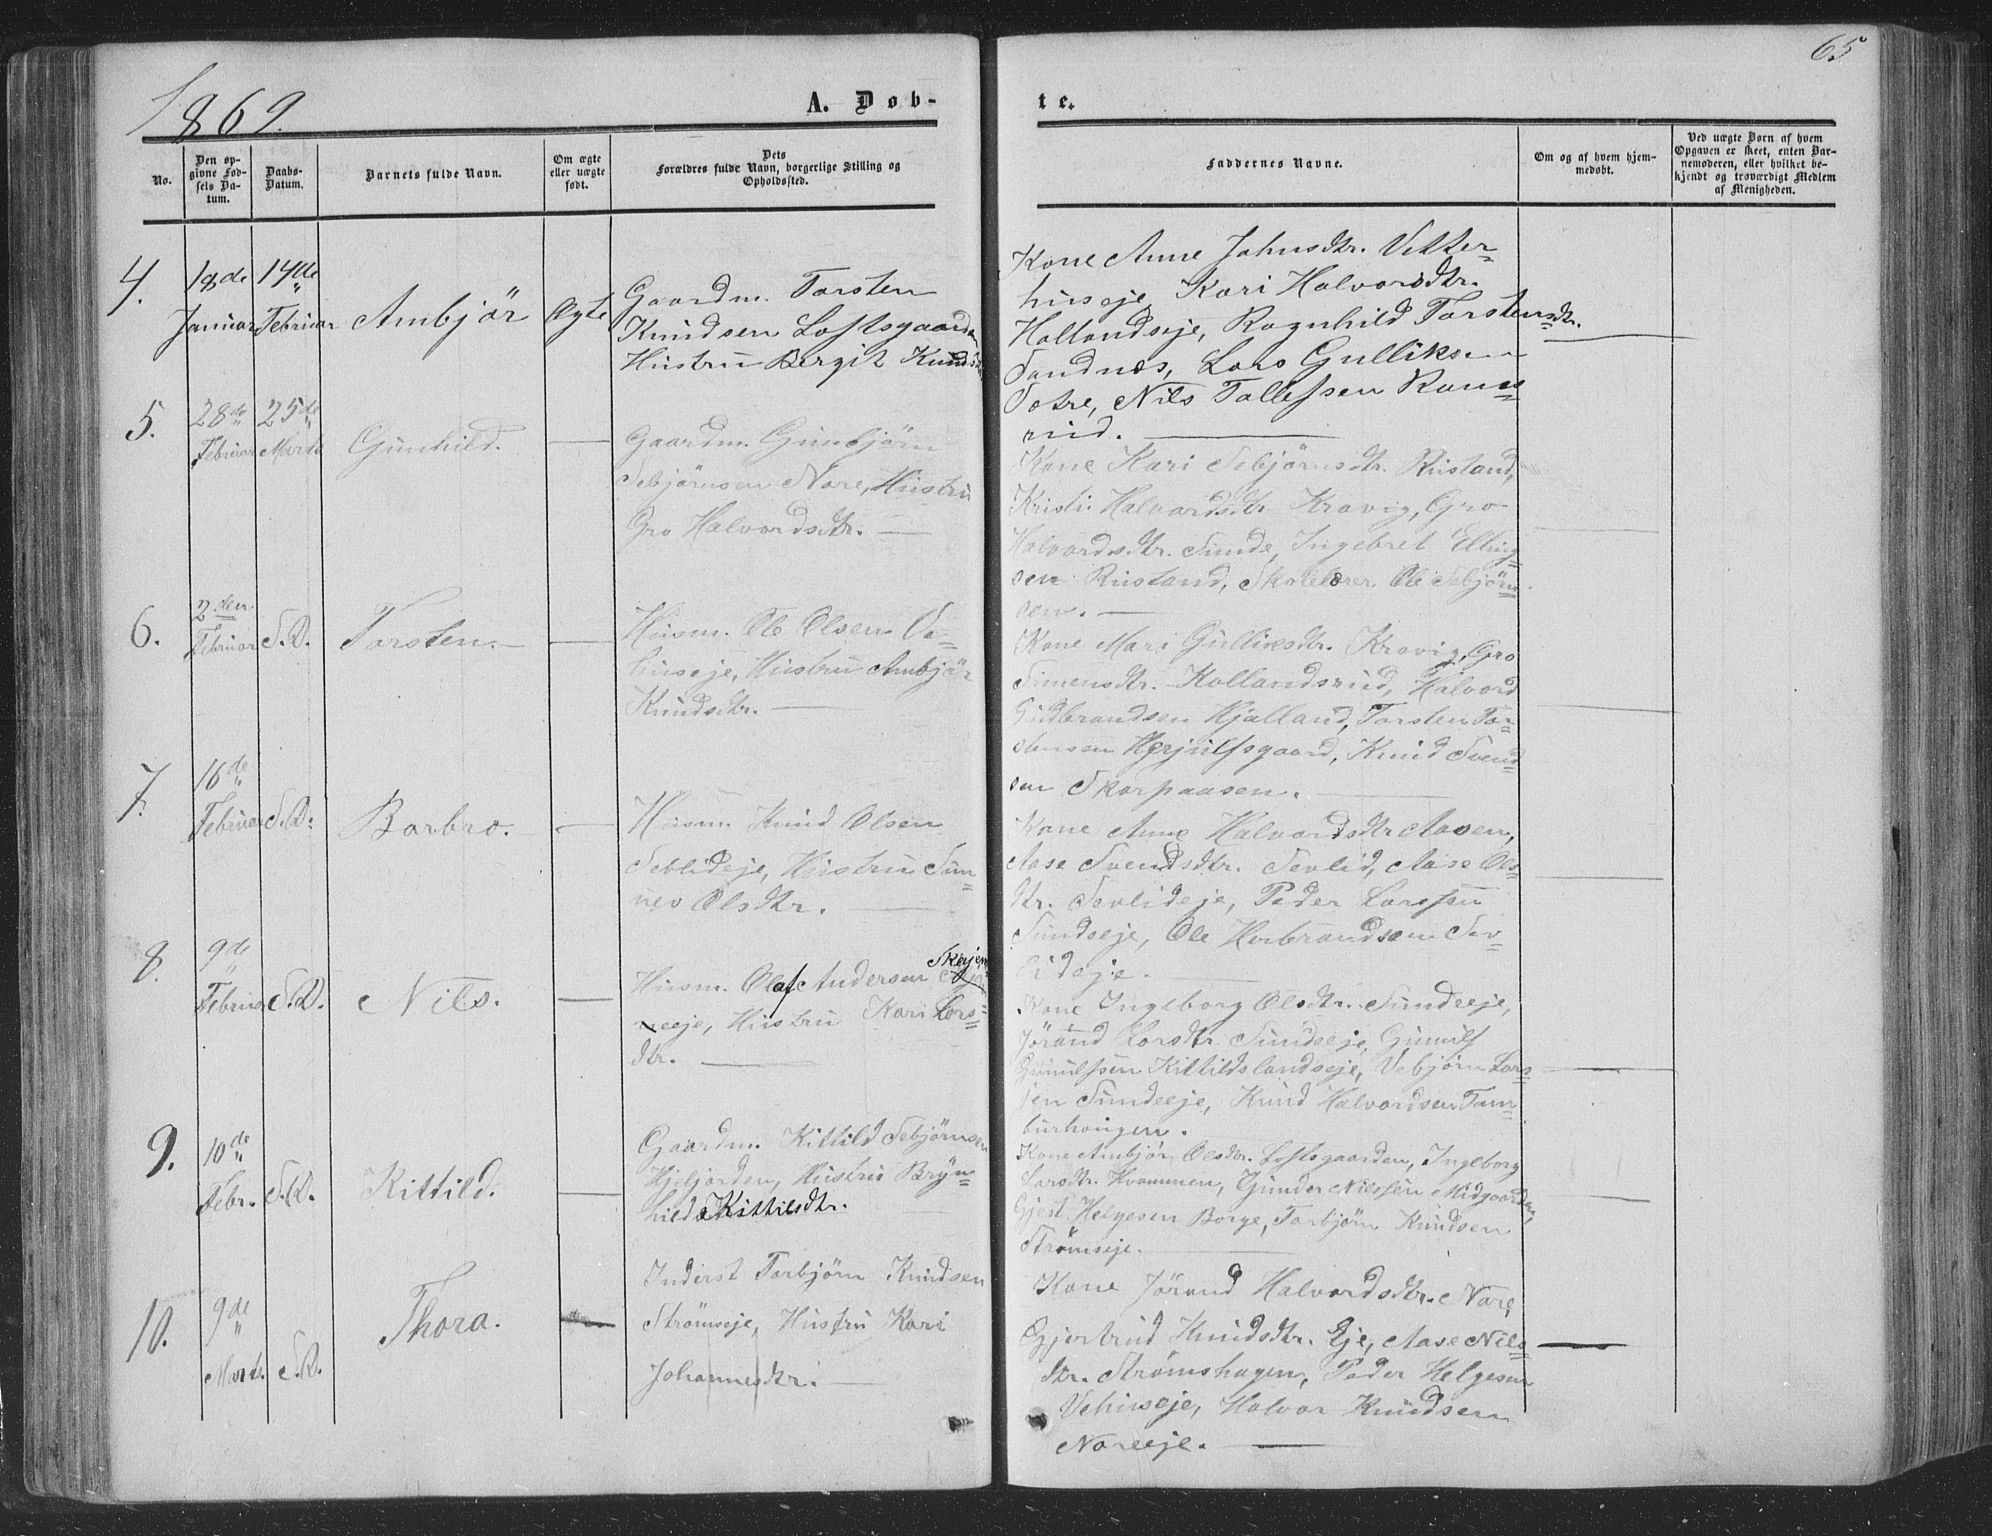 1869.
A. Døb-
te.
65
No.
Den op-
givne Fød-
sels Da-
tum.
Daabs-
Datum.
Barnets fulde Navn.
Om ægte
eller uægte
født.
Dets
Forældres fulde Navn, borgerlige Stilling og
Opholdssted.
Faddernes Navne.
Om og af hvem hjem-
medøbt.
Ved uægte Born af hvem
Opgaven er skeet, enten Bar-
nemoderen, eller hvilket be-
kjendt og troværdigt Medlem
af Menigheden.
4.
18de
Januar
14de
Februar
Ambjör
Ægte
Gaardm. Torsten
Knudsen Loftsgaarden
Hustru Bergit Knudsdtr.
Kone Anne Johnsdtr. Vetter-
huseje, Kari Halvorsdtr.
Hallandseje, Ragnhild Torstensdtr.
Sandnes, Lars Gulliksen
Satre, Nils Tollefssen Rams-
rud.
5.
28de
Februar
25de
Marts
Gunhild.
Gaardm. Gunbjörn
Sebjörnsen Nore, Hustru
Gro Halvordsdtr.
Kone Kari Sebjörnsdtr. Rustand,
Kristi Halvordsdtr Kravig, Gro
Halvordsdtr. Sunde, Ingebret Elling-
sen Rustand, Skolelærer Ole Sebjörn-
sen.
6.
2den
Februar
S.D.
Torsten.
Husm. Ole Olsen Ve-
huseje, Hustru Ambjör
Knudsdtr.
Kone Mari Gulliksdtr. Kravig, Gro
Simensdtr. Hollandsrud, Halvord
Gudbrandsen Hjalland, Torsten Tor-
stensen Herjulfsgaard, Knud Svend-
sen Skarpaasen.
7.
16de
Februar
S.D.
Barbro.
Husm. Knud Olsen
Sevlideje, Hustru Sun-
nev Olsdtr.
Kone Anne Halvordsdtr Aasen,
Aase Svendsdtr. Sevlid, Aase Ols-
dtr. Sevlideje, Peder Larssen
Sundeeje, Ole Herbrandsen Sev-
lideje.
8.
9de
Februar
S.D.
Nils.
Husm. Olaf Andersen Skejem-
neeje, Hustru Kari Lars-
dtr.
Kone Ingeborg Olsdtr. Sundeeje,
Jörand Larsdtr Sundeeje, Gunulf
Gunulfssen Kittildslandseje, Vebjörn Lars-
sen Sundeeje, Knud Halvordsen Tam-
burhaugen.
9.
10de
Febr.
S.D.
Kittild.
Gaardm. Kittild Sebjörnsen
Hjeljorden, Hustru Bryn-
hild Kittilsdtr.
Kone Ambjör Olsdtr. Loftsgaarden, Ingeborg
Larsdtr. Kvammen, Gunder Nilssen Midgaarden,
Gjest Helgesen Borge, Torbjörn Knudsen
Strömseje.
10.
9de
Marts.
S.D.
Thora.
Inderst Torbjörn Knudsen
Strömseje, Hustru Kari
Johannesdtr.
Kone Jörand Halvordsdtr. Nore,
Gjertrud Knudsdtr. Eje, Aase Nils-
dtr. Strömshagen, Peder Helgesen
Vehuseje, Halvor Knudsen
Noreeje.